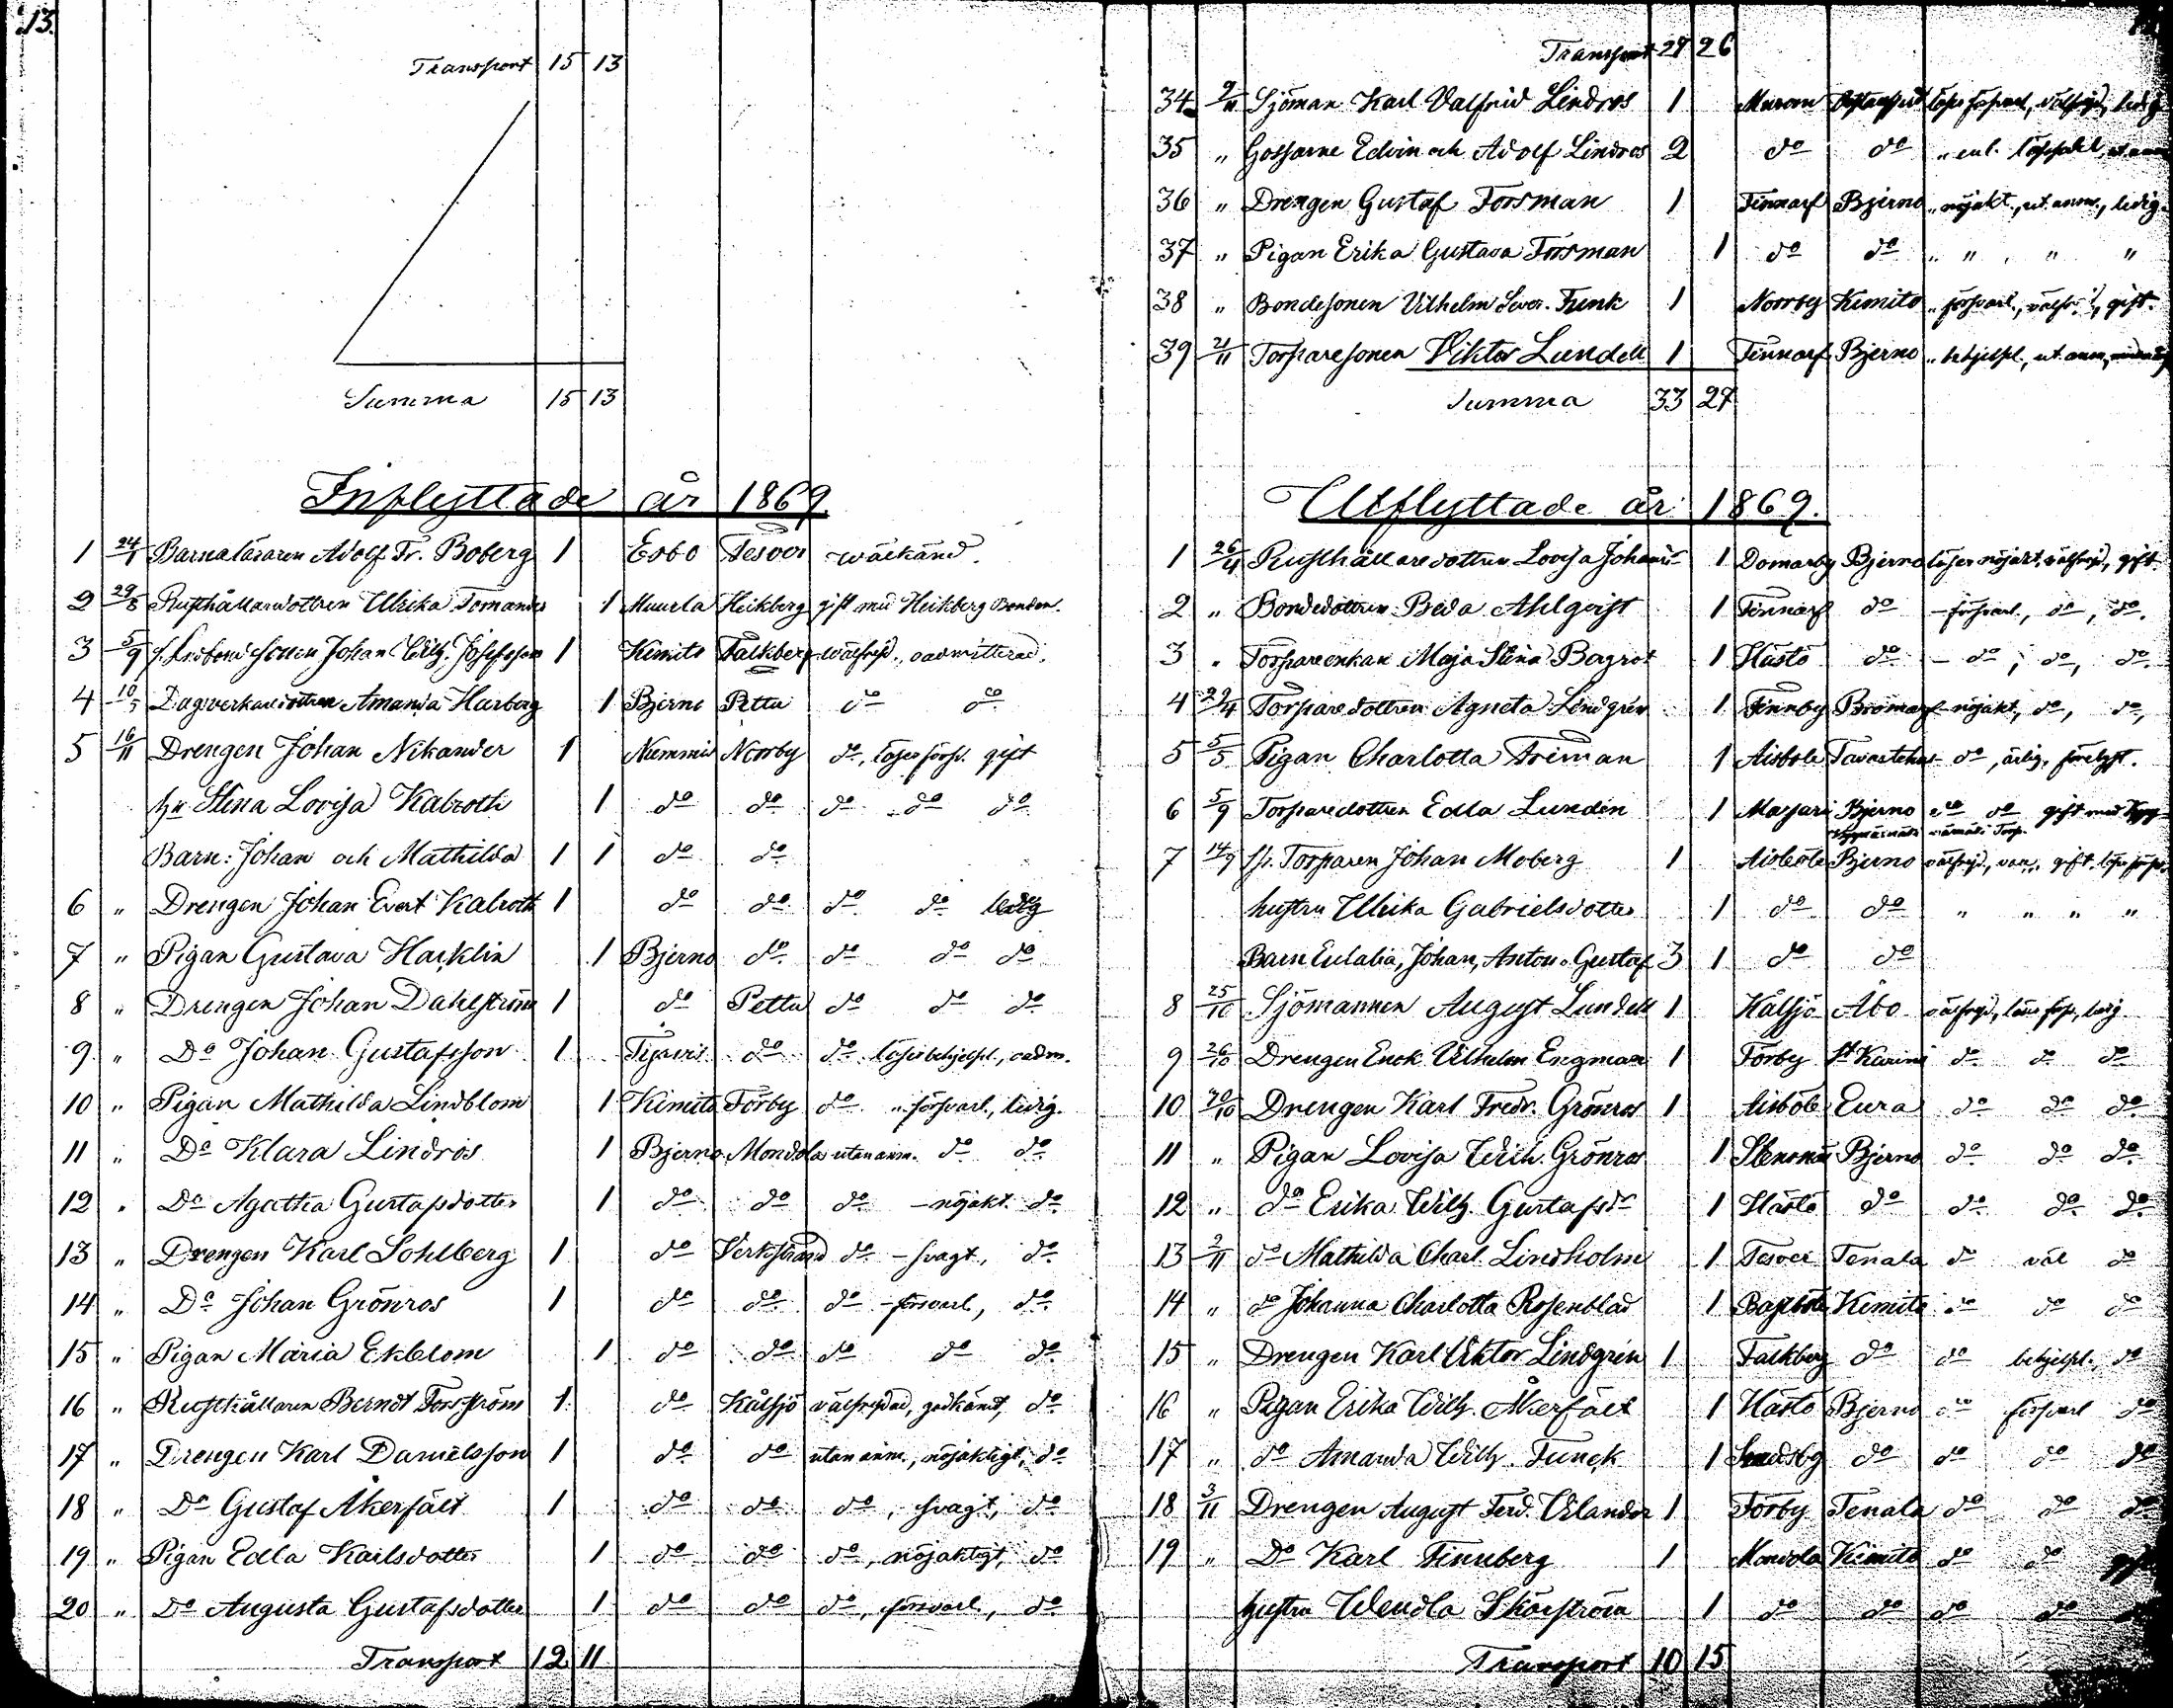 13.
Transport 15 13
Summa 15 13
Inflyttade år 1869.
1 24/1 Barnaläraren Adolf Fr. Boberg 1 Esbo Tesvor wälkänd.
2 29/8 Rusthållaredottren Ulrika Tomander 1 Muurla Heikberg gift med Heikberg Bonden.
3 5/9 Johan Wilh. Josefsson 1 Kimito Falkberg wälfrejd., oadmitterad.
4 10/5 Dagsverkaredottren Amanda Harberg 1 Bjerno Pettu do do
5 16/11 Drengen Johan Nikander 1 Nummis Norby do, läser försv. gift
hu Stina Lovisa Kalroth 1 do do do do do
Barn: Johan och Mathilda 1 1 do do
6 " Drengen Johan Evert Kalroth 1 do do do do ledig
7 " Pigan Gustava Harklin 1 Bjerno do do do do
8 " Drengen Johan Dahlström 1 do Pettu do do do
9 " Do Johan Gustafsson 1 do do läser behjelpl., oadm.
10 " Pigan Mathilda Lindblom 1 Kimito Förby do " försvarl., ledig.
11 " Do Klara Lindros 1 Bjerno Mondola utan anm. do do
12 " Do Agatha Gustafsdotter 1 do do do - nöjakt. do
13 " Drengen Karl Sohlberg 1 do Verkstrand do - svagt, do
14 " Do Johan Grönros 1 do do do - försvarl, do
15 " Pigan Maria Ekblom 1 do do do do do
16 " Rusthållaren Berndt Forsström 1 do Kålsjö välfrejdad, godkänd, do
17 " Drengen Karl Danielsson 1 do do utan anm., nöjaktigt, do
18 " Do Gustaf Åkerfält 1 do do do, svagt, do
19 " Pigan Edla Karlsdotter 1 do do do, nöjaktigt, do
20 " Do Augusta Gustafsdotter 1 do do do, försvarl., do
Transport 12 11
Transport 27 26
34 9/11 Sjöman Karl Valfrid Lindros 1 läser försvarl, välfrejd, ledig
35 " Gossarne Edvin och Adolf Lindros 2 do do
36 " Drengen Gustaf Forsman 1 Finnarf Bjerno " nöjakt., ut. anm., ledig.
37 " Pigan Erika Gustava Forsman 1 do do " " " "
38 " Bondesonen Vilhelm Sever. Funk 1 Norrby Kimito " försvarl., välfr., gift.
39 21/11 Torparesonen Viktor Lundell 1 Finnarf Bjerno " behjelpl., ut. anm.,
Summa 33 27
Utflyttade år 1869.
1 26/4 Rusthållaredottren Lovisa Johansdr 1 Domarby Bjerno läser nöjakt, välfrejd, gift
2 " Bondedottren Beda Ahlqvist 1 Finnarf do - försvarl., do, do.
3 " Torpareenkan Maja Stina Bagrot 1 Hästö do - do, do, do.
4 29/4 Torparedottren Agneta Lindgrén 1 Finnby Bromarf - nöjakt, do, do,
5 5/5 Pigan Charlotta Friman 1 Aisböle Tavastehus - do, ärlig, förelyst.
6 5/9 Torparedottren Edla Lundén 1 Marjari Bjerno do do gift med
7 14/9 Torparen Johan Moberg 1 Aisböle Bjerno välfrejd, gift, läser försv.
hustru Ulrika Gabrielsdotter 1 do do " " " "
Barn Eulalia, Johan, Anton o. Gustaf 3 1 do do
8 25/10 Sjömannen August Lundell 1 Kålsjö Åbo välfrejd, läser förs., ledig
9 26/10 Drengen Enok Vilhelm Engman 1 Förby St Karins do do do
10 20/10 Drengen Karl Fredr. Grönros 1 Aisböle Eura do do do
11 " Pigan Lovisa Wilh. Grönros 1 Bjerno do do do
12 " do Erika Wilh. Gustafsdr 1 Hästö do do do do
13 2/11 do Mathilda Charl. Lindholm 1 Tesvor Tenala do väl do
14 " do Johanna Charlotta Rosenblad 1 Kimito do do do
15 " Drengen Karl Viktor Lindgrén 1 Falkberg do do behjelpl. do
16 " Pigan Erika Wilh. Åkerfält 1 Hästö Bjerno do försvarl do
17 " do Amanda Wilh. Funck 1 do do do do
18 3/11 Drengen August Ferd. Velander 1 Förby Tenala do do do
19 " Do Karl Finnberg 1 Mondola Kimito do do
hustru Wendla Skärström 1 do do do do
Transport 10 15